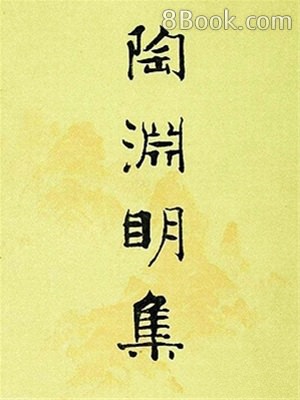 8Book.com
陶淵明集